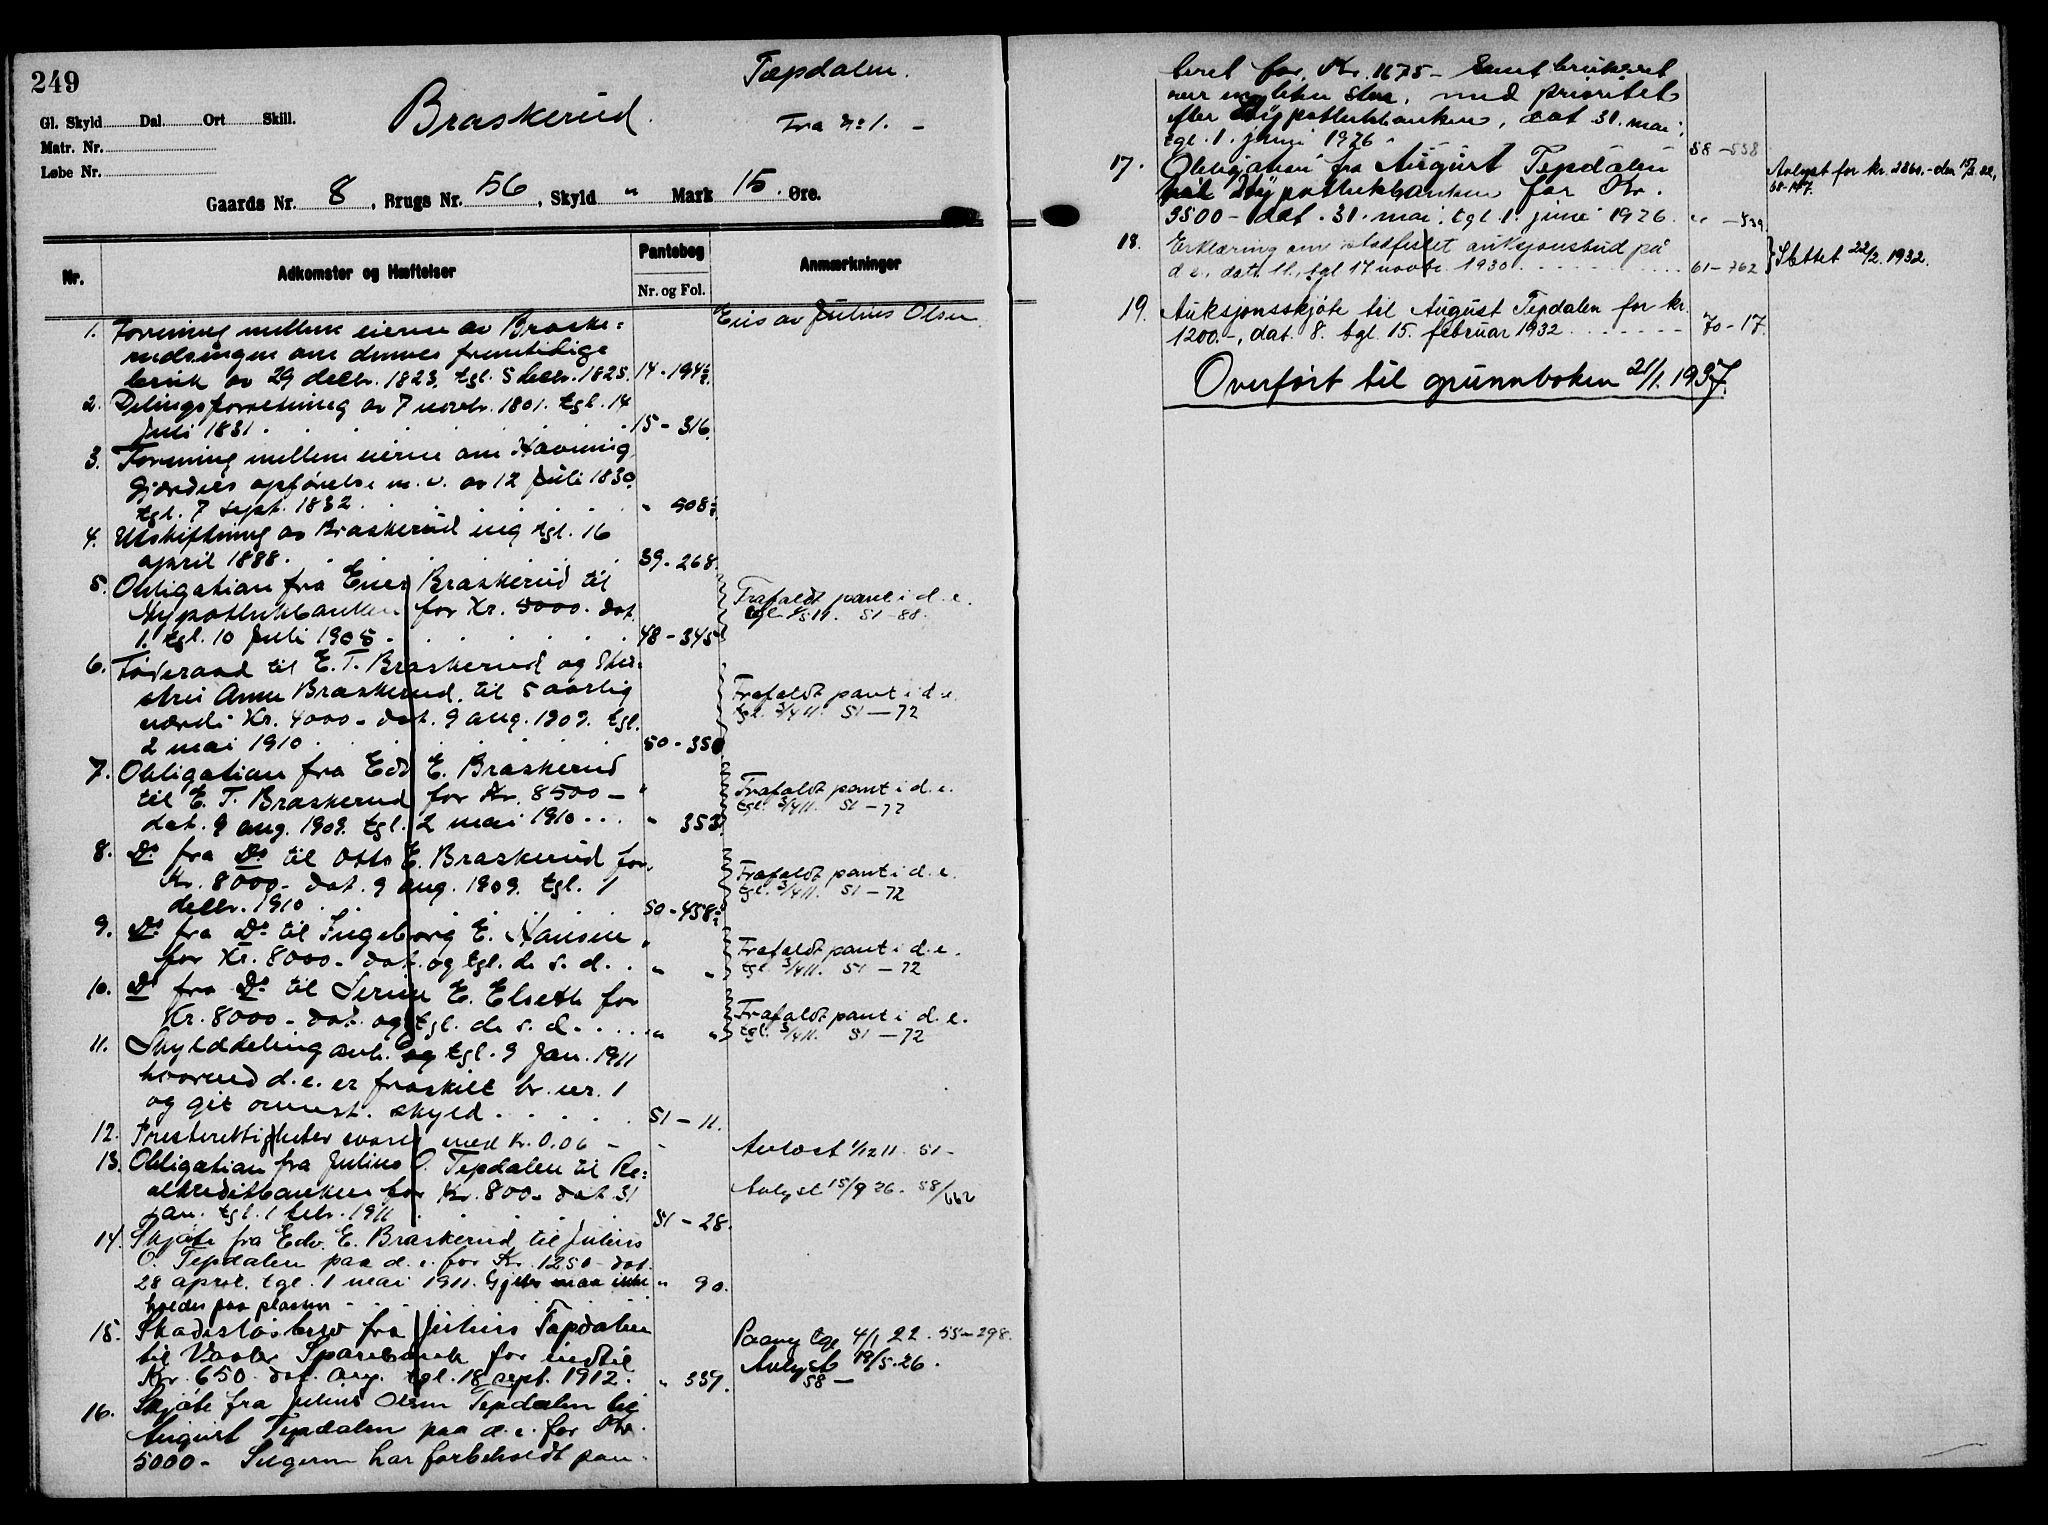 249
Tæpdalen.
Gl. Skyld Dal. Ort Skill.
Braskerud.
Fra No 1. -
Matr. Nr.
Løbe Nr.
Gaards Nr. 8, Brugs Nr. 56, Skyld " Mark 15. Øre.
Nr. Adkomster og Hæftelser Pantebog Nr. og Fol. Anmærkninger
Eies av Julius Olsen.
1. Forening mellem eierne av Braske-
rudsingen om dennes fremtidige
bruk av 29 decbr. 1823, tgl. 5 decbr. 1825. 14-194
2. Delingsforretning av 7 novbr. 1801. tgl. 14
Juli 1831. 15-316.
3. Forening mellem eierne om Havning,
gjærders opførelse m.v. av 12 Juli 1830.
tgl. 7 sept. 1832. " 508
4. Utskiftning av Braskerud eng tgl. 16
april 1888. 39-268.
5. Obligation fra Einer Braskerud til
Hypothekbanken for Kr. 5000- dat.
1. tgl. 10 Juli 1905. 48-345
Frafaldt pant i d.e.
51-88.
6. Føderaad til E. T. Braskerud og
Anne Braskerud, til 5 aarlig
værdi Kr. 4000- dat. 9 aug. 1909. tgl.
2 mai 1910. 50-350
Frafaldt pant i d.e.
tgl. 3/4 11. 51-72
7. Obligation fra Edv E. Braskerud
til E. T. Braskerud for Kr. 8500-
dat. 9 aug. 1909. tgl. 2 mai 1910. " 353
Frafaldt pant i d.e.
tgl. 3/4 11. 51-72
8. Do fra Do til Otto E. Braskerud for
Kr. 8000- dat. 9 aug. 1909. tgl. 1
decbr. 1910. 50-458
Frafaldt pant i d.e.
tgl. 3/4 11. 51-72
9. Do fra Do til Ingeborg E. Hansen
for Kr. 8000- dat. og tgl. d. s. d. " "
Frafaldt pant i d.e.
tgl. 3/4 11. 51-72
10. Do fra Do til Serine E. Elseth for
Kr. 8000- dat. og tgl. d. s. d. " "
Frafaldt pant i d.e.
tgl. 3/4 11. 51-72
11. Skylddeling avh. og tgl. 9 Jan. 1911
hvorved d.e. er fraskilt br. nr. 1
og git ovennt. skyld. 51-11.
12. Presterettigheter svares med Kr. 0.06 -
Avløst 1/12 11. 51-
13. Obligation fra Julius O. Tepdalen til Re-
alkreditbanken for Kr. 800- dat. 31
jan. tgl. 1 febr. 1911 51-28.
Avlyst 15/9 26. 58/662
14. Skjøte fra Edv. E. Braskerud til Julius
O. Tepdalen paa d.e. for Kr. 1250- dat.
28 april, tgl. 1 mai 1911. Gjeter maa ikke " 90.
holdes paa pladsen
15. Skadesløsbrev fra Julius Tæpdalen
til Vaaler Sparebank for indtil
Kr. 650- dat. aug. tgl. 18 sept. 1912. " 339.
Paany tgl 4/1 22. 55-298.
Avlyst 19/5 26.
58-
16. Skjøte fra Julius Olsen Tepdalen til
August Tepdalen paa d.e. for Kr.
5000- Selgeren har forbeholdt pan-
teret for Kr. 1675- samt bruksret
med prioritet
efter Hypothekbanken, dat 31. mai,
tgl. 1. juni 1926. 58-538
17. Obligasjon fra August Tepdalen
til Hypothekbanken for Kr.
3500- dat. 31. mai, tgl. 1. juni 1926. " -539
Avlyst for kr. 2860.- den 15/2 32,
18. Erklæring om stadfestet auksjonsbud på
d.e., dat. 11., tgl 17 novbr. 1930. 61-762
Slettet 22/2. 1932.
19. Auksjonsskjøte til August Tepdalen for kr.
1200.-, dat. 8. tgl. 15. februar 1932 70-17.
Overført til grunnboken 21/1. 1937.